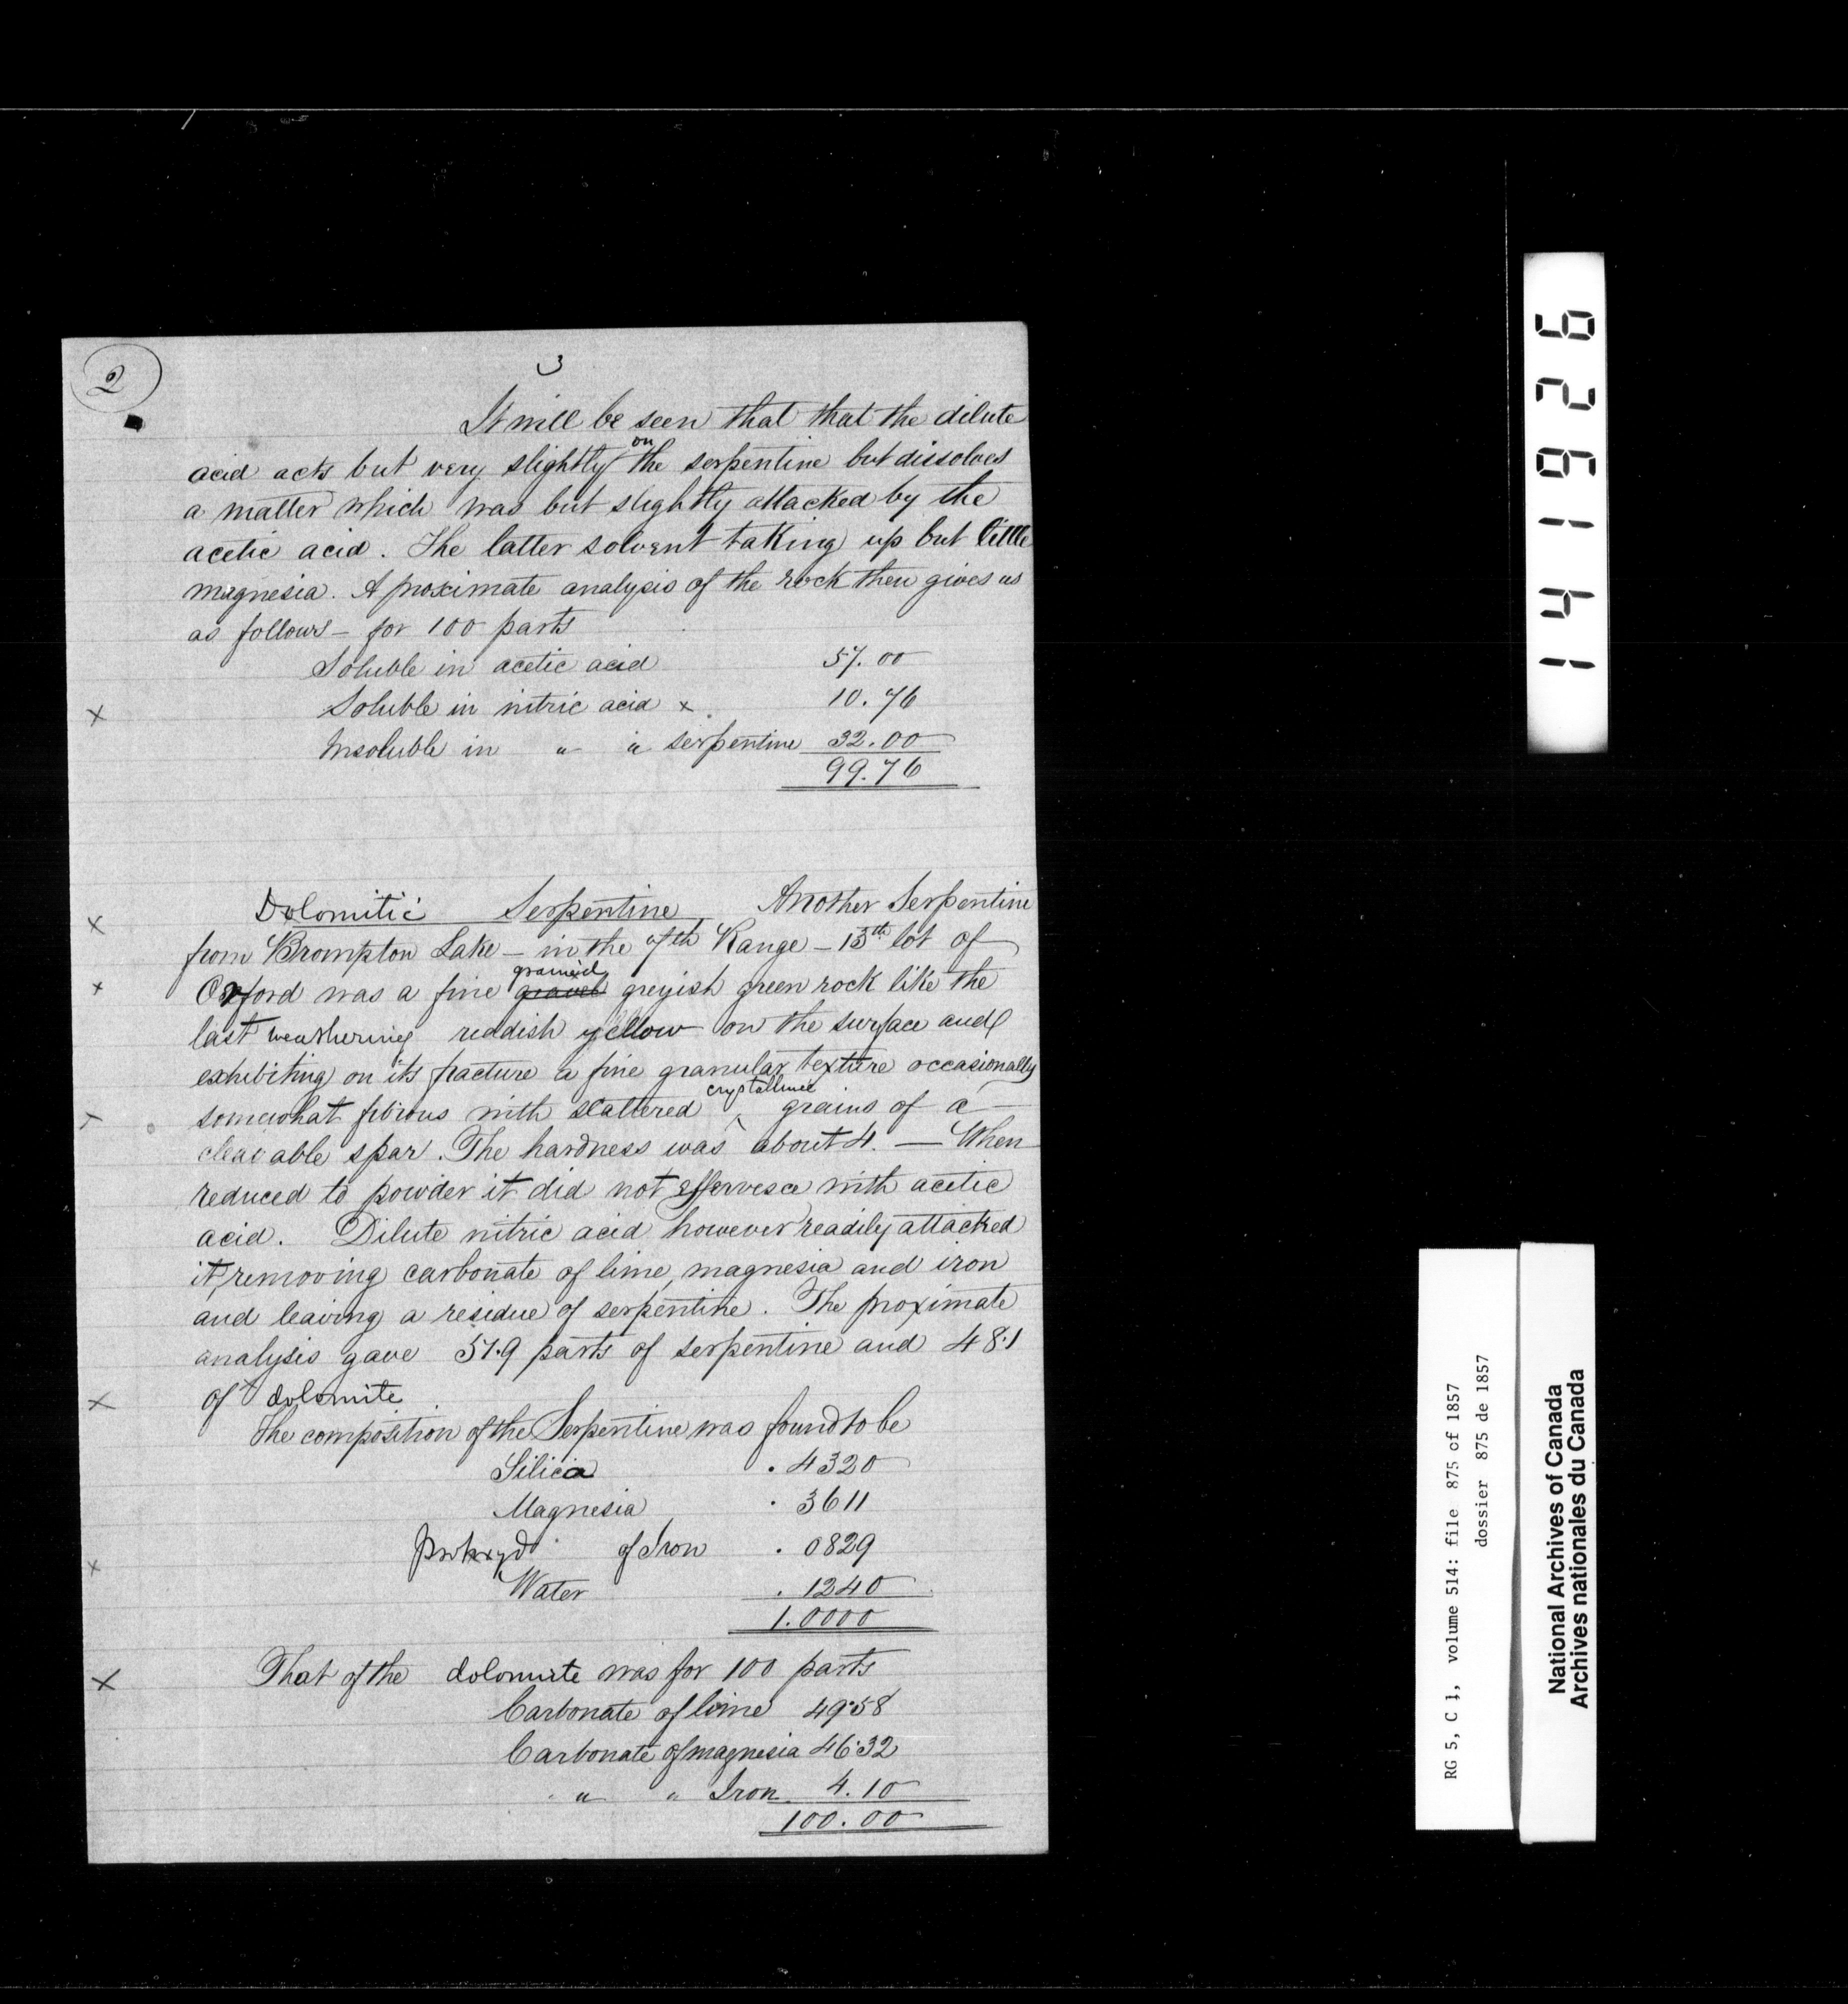 2
3
It will be seen that that the dilute
acid acts but very slightly on the serpentine but dissolves
a matter which was but slightly attacked by the
acetic acid. The latter solvent taking up but little
magnesia. A proximate analysis of the rock then gives us
as follows — for 100 parts
Soluble in acetic acid 57.00
x Soluble in nitric acid x 10.76
Insoluble in " " serpentine 32.00
99.76
x Dolomitic Serpentine Another Serpentine
from Brompton Lake — in the 7th Range — 13th lot of
grained
x Orford was a fine gravel greyish green rock like the
last weathering reddish yellow on the surface and
exhibiting on its fracture a fine granular texture occasionally
crystalline
x somewhat fibrous with scattered grains of a
cleavable spar. The hardness was about 4. — When
reduced to powder it did not effervesce with acetic
acid. Dilute nitric acid however readily attacked
it, removing carbonate of lime, magnesia and iron
and leaving a residue of serpentine. The proximate
analysis gave 51.9 parts of serpentine and 48.1
x of dolomite
The composition of the Serpentine was found to be
Silica .4320
Magnesia .3611
x protoxyd of Iron .0829
Water .1240
1.0000
x That of the dolomite was for 100 parts
Carbonate of lime 49.58
Carbonate of magnesia 46.32
" " Iron 4.10
100.00
141926
RG 5, C 1, volume 514: file 875 of 1857
dossier 875 de 1857
National Archives of Canada
Archives nationales du Canada